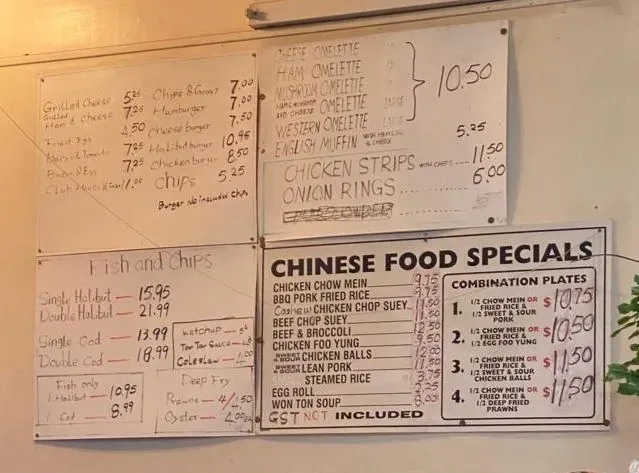 Grilled Cheese 5.25
Grilled Ham & Cheese 7.25
Fried Egg 4.50
Bacon & Tomato 7.25
Bacon & Egg 7.25
Club House
Chips & Gravy 7.00
Hamburger 7.00
Cheeseburger 7.50
Halibutburger 10.95
Chickenburger 8.50
Chips 5.25
Burger No included Chips
CHEESE OMELETTE
HAM OMELETTE
MUSHROOM OMELETTE
HAM & MUSHROOM AND CHEESE OMELETTE
WESTERN OMELETTE
10.50
ENGLISH MUFFIN WITH HAM, EGG & CHEESE 5.25
CHICKEN STRIPS WITH CHIPS 11.50
ONION RINGS 6.00
Fish and Chips
Single Halibut — 15.95
Double Halibut — 21.99
Single Cod — 13.99
Double Cod — 18.99
Ketchup
Tar Tar Sauce
Coleslaw
Fish only
1 Halibut — 10.95
1 Cod — 8.99
Deep Fry
Prawns — 4/
Oyster —
CHINESE FOOD SPECIALS
CHICKEN CHOW MEIN 9.75
BBQ PORK FRIED RICE 9.75
Cashew CHICKEN CHOP SUEY 11.50
BEEF CHOP SUEY 11.50
BEEF & BROCCOLI 12.50
CHICKEN FOO YUNG 9.50
SWEET & SOUR CHICKEN BALLS 12.00
SWEET & SOUR LEAN PORK 11.50
STEAMED RICE
EGG ROLL
WON TON SOUP 8.00
GST NOT INCLUDED
COMBINATION PLATES
1. 1/2 CHOW MEIN OR FRIED RICE & 1/2 SWEET & SOUR PORK $10.75
2. 1/2 CHOW MEIN OR FRIED RICE & 1/2 EGG FOO YUNG $10.50
3. 1/2 CHOW MEIN OR FRIED RICE & 1/2 SWEET & SOUR CHICKEN BALLS $11.50
4. 1/2 CHOW MEIN OR FRIED RICE & 1/2 DEEP FRIED PRAWNS $11.50